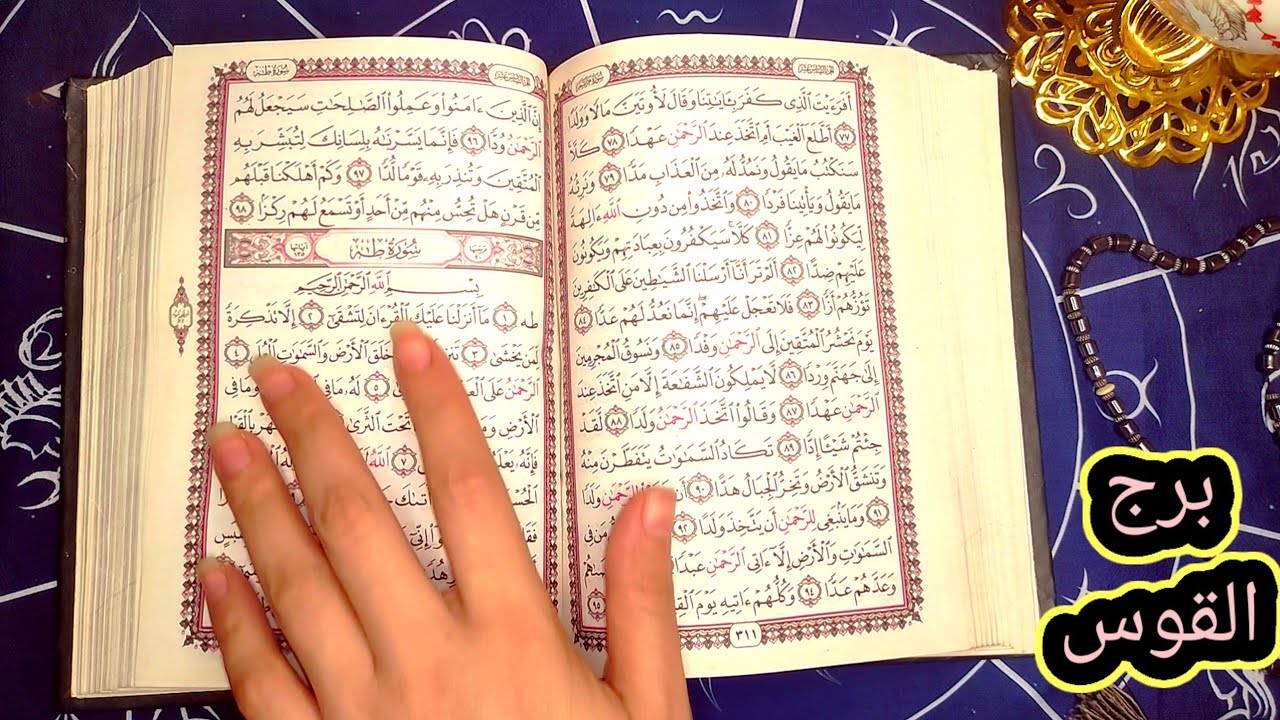 أَفَرَءَيْتَ ٱلَّذِى كَفَرَ بِـَٔايَـٰتِنَا وَقَالَ لَأُوتَيَنَّ مَالًا وَوَلَدًا
٧٧ أَطَّلَعَ ٱلْغَيْبَ أَمِ ٱتَّخَذَ عِندَ ٱلرَّحْمَـٰنِ عَهْدًا ٧٨ كَلَّا
سَنَكْتُبُ مَا يَقُولُ وَنَمُدُّ لَهُۥ مِنَ ٱلْعَذَابِ مَدًّا ٧٩ وَنَرِثُهُۥ
مَا يَقُولُ وَيَأْتِينَا فَرْدًا ٨٠ وَٱتَّخَذُوا۟ مِن دُونِ ٱللَّهِ ءَالِهَةً
لِّيَكُونُوا۟ لَهُمْ عِزًّا ٨١ كَلَّا سَيَكْفُرُونَ بِعِبَادَتِهِمْ وَيَكُونُونَ
عَلَيْهِمْ ضِدًّا ٨٢ أَلَمْ تَرَ أَنَّآ أَرْسَلْنَا ٱلشَّيَـٰطِينَ عَلَى ٱلْكَـٰفِرِينَ
تَؤُزُّهُمْ أَزًّا ٨٣ فَلَا تَعْجَلْ عَلَيْهِمْ إِنَّمَا نَعُدُّ لَهُمْ عَدًّا ٨٤
يَوْمَ نَحْشُرُ ٱلْمُتَّقِينَ إِلَى ٱلرَّحْمَـٰنِ وَفْدًا ٨٥ وَنَسُوقُ ٱلْمُجْرِمِينَ
إِلَىٰ جَهَنَّمَ وِرْدًا ٨٦ لَّا يَمْلِكُونَ ٱلشَّفَـٰعَةَ إِلَّا مَنِ ٱتَّخَذَ عِندَ
ٱلرَّحْمَـٰنِ عَهْدًا ٨٧ وَقَالُوا۟ ٱتَّخَذَ ٱلرَّحْمَـٰنُ وَلَدًا ٨٨ لَّقَدْ
جِئْتُمْ شَيْـًٔا إِدًّا ٨٩ تَكَادُ ٱلسَّمَـٰوَٰتُ يَتَفَطَّرْنَ مِنْهُ
وَتَنشَقُّ ٱلْأَرْضُ وَتَخِرُّ ٱلْجِبَالُ هَدًّا ٩٠ أَن لِلرَّحْمَـٰنِ وَلَدًا
٩١ وَمَا يَنۢبَغِى لِلرَّحْمَـٰنِ أَن يَتَّخِذَ وَلَدًا ٩٢ مَن فِى
ٱلسَّمَـٰوَٰتِ وَٱلْأَرْضِ إِلَّآ ءَاتِى ٱلرَّحْمَـٰنِ عَبْدًا
وَعَدَّهُمْ عَدًّا ٩٤ وَكُلُّهُمْ ءَاتِيهِ يَوْمَ ٩٥
٣١١
سُورَةُ طه
إِنَّ ٱلَّذِينَ ءَامَنُوا۟ وَعَمِلُوا۟ ٱلصَّـٰلِحَـٰتِ سَيَجْعَلُ لَهُمُ
ٱلرَّحْمَـٰنُ وُدًّا ٩٦ فَإِنَّمَا يَسَّرْنَـٰهُ بِلِسَانِكَ لِتُبَشِّرَ بِهِ
ٱلْمُتَّقِينَ وَتُنذِرَ بِهِۦ قَوْمًا لُّدًّا ٩٧ وَكَمْ أَهْلَكْنَا قَبْلَهُم
مِّن قَرْنٍ هَلْ تُحِسُّ مِنْهُم مِّنْ أَحَدٍ أَوْ تَسْمَعُ لَهُمْ رِكْزًۢا ٩٨
سُورَةُ طه
بِسْمِ ٱللَّهِ ٱلرَّحْمَـٰنِ ٱلرَّحِيمِ
طه ١ مَآ أَنزَلْنَا عَلَيْكَ ٱلْقُرْءَانَ لِتَشْقَىٰٓ ٢ إِلَّا تَذْكِرَةً
لِّمَن يَخْشَىٰ ٣ خَلَقَ ٱلْأَرْضَ وَٱلسَّمَـٰوَٰتِ ٱلْعُلَى ٤
ٱلرَّحْمَـٰنُ عَلَى ٥ لَهُۥ مَا فِى وَمَا فِى
ٱلْأَرْضِ تَحْتَ ٱلثَّرَىٰ
فَإِنَّهُۥ ٧ ٱللَّهُ
برج
القوس